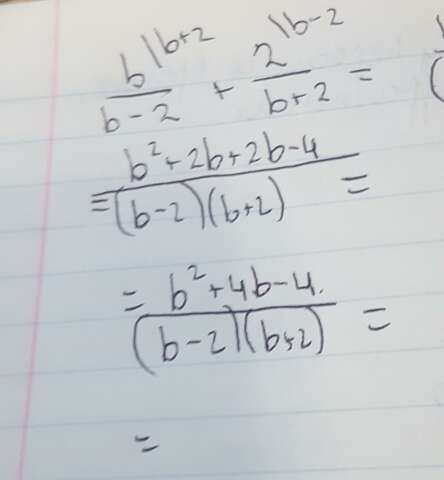 b^{|b+2}/(b-2) + 2^{|b-2}/(b+2) =
= (b²+2b+2b-4)/((b-2)(b+2)) =
= (b²+4b-4.)/((b-2)(b+2)) =
=